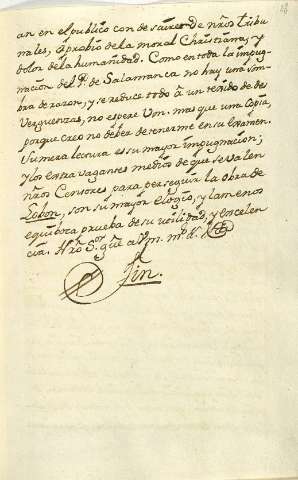 an en el publico con desaire de nr̃os tribu
nales, oprobio de la moral Christiana, y
dolor de la humanidad. Como en toda la impug-
nacion del P.e de Salamanca no hay una som-
bra de razon, y se reduce todo à un texido de des
verguenzas, no espere Vm. mas que una Copia,
porque creo no deber detenerme en su Examen.
Su mera lectura es su mayor impugnacion;
y los extravagantes medios de que se valen
nr̃os Censores para perseguir la obra de
Lobon, son su mayor elogio, y la menos
equiboca prueba de su utilidad, y excelen
cia. Nr̃o S.or gũe a Vm. m.s a.s
Fin.